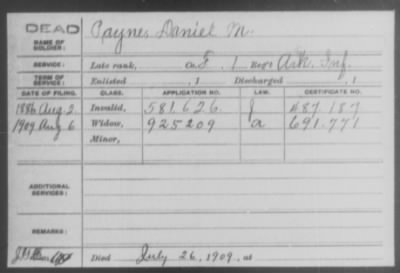 DEAD
NAME OF SOLDIER: Payne, Daniel M.
SERVICE: Late rank, Co. F, 1 Reg't Ark. Inf.
TERM OF SERVICE: Enlisted , 1 Discharged , 1
DATE OF FILING. CLASS. APPLICATION NO. LAW. CERTIFICATE NO.
1886 Aug. 2. Invalid, 581.626. J 487.187
1909 Aug 6 Widow, 925209 a 691.771
Minor,
ADDITIONAL SERVICES:
REMARKS:
Died July 26, 1909, at